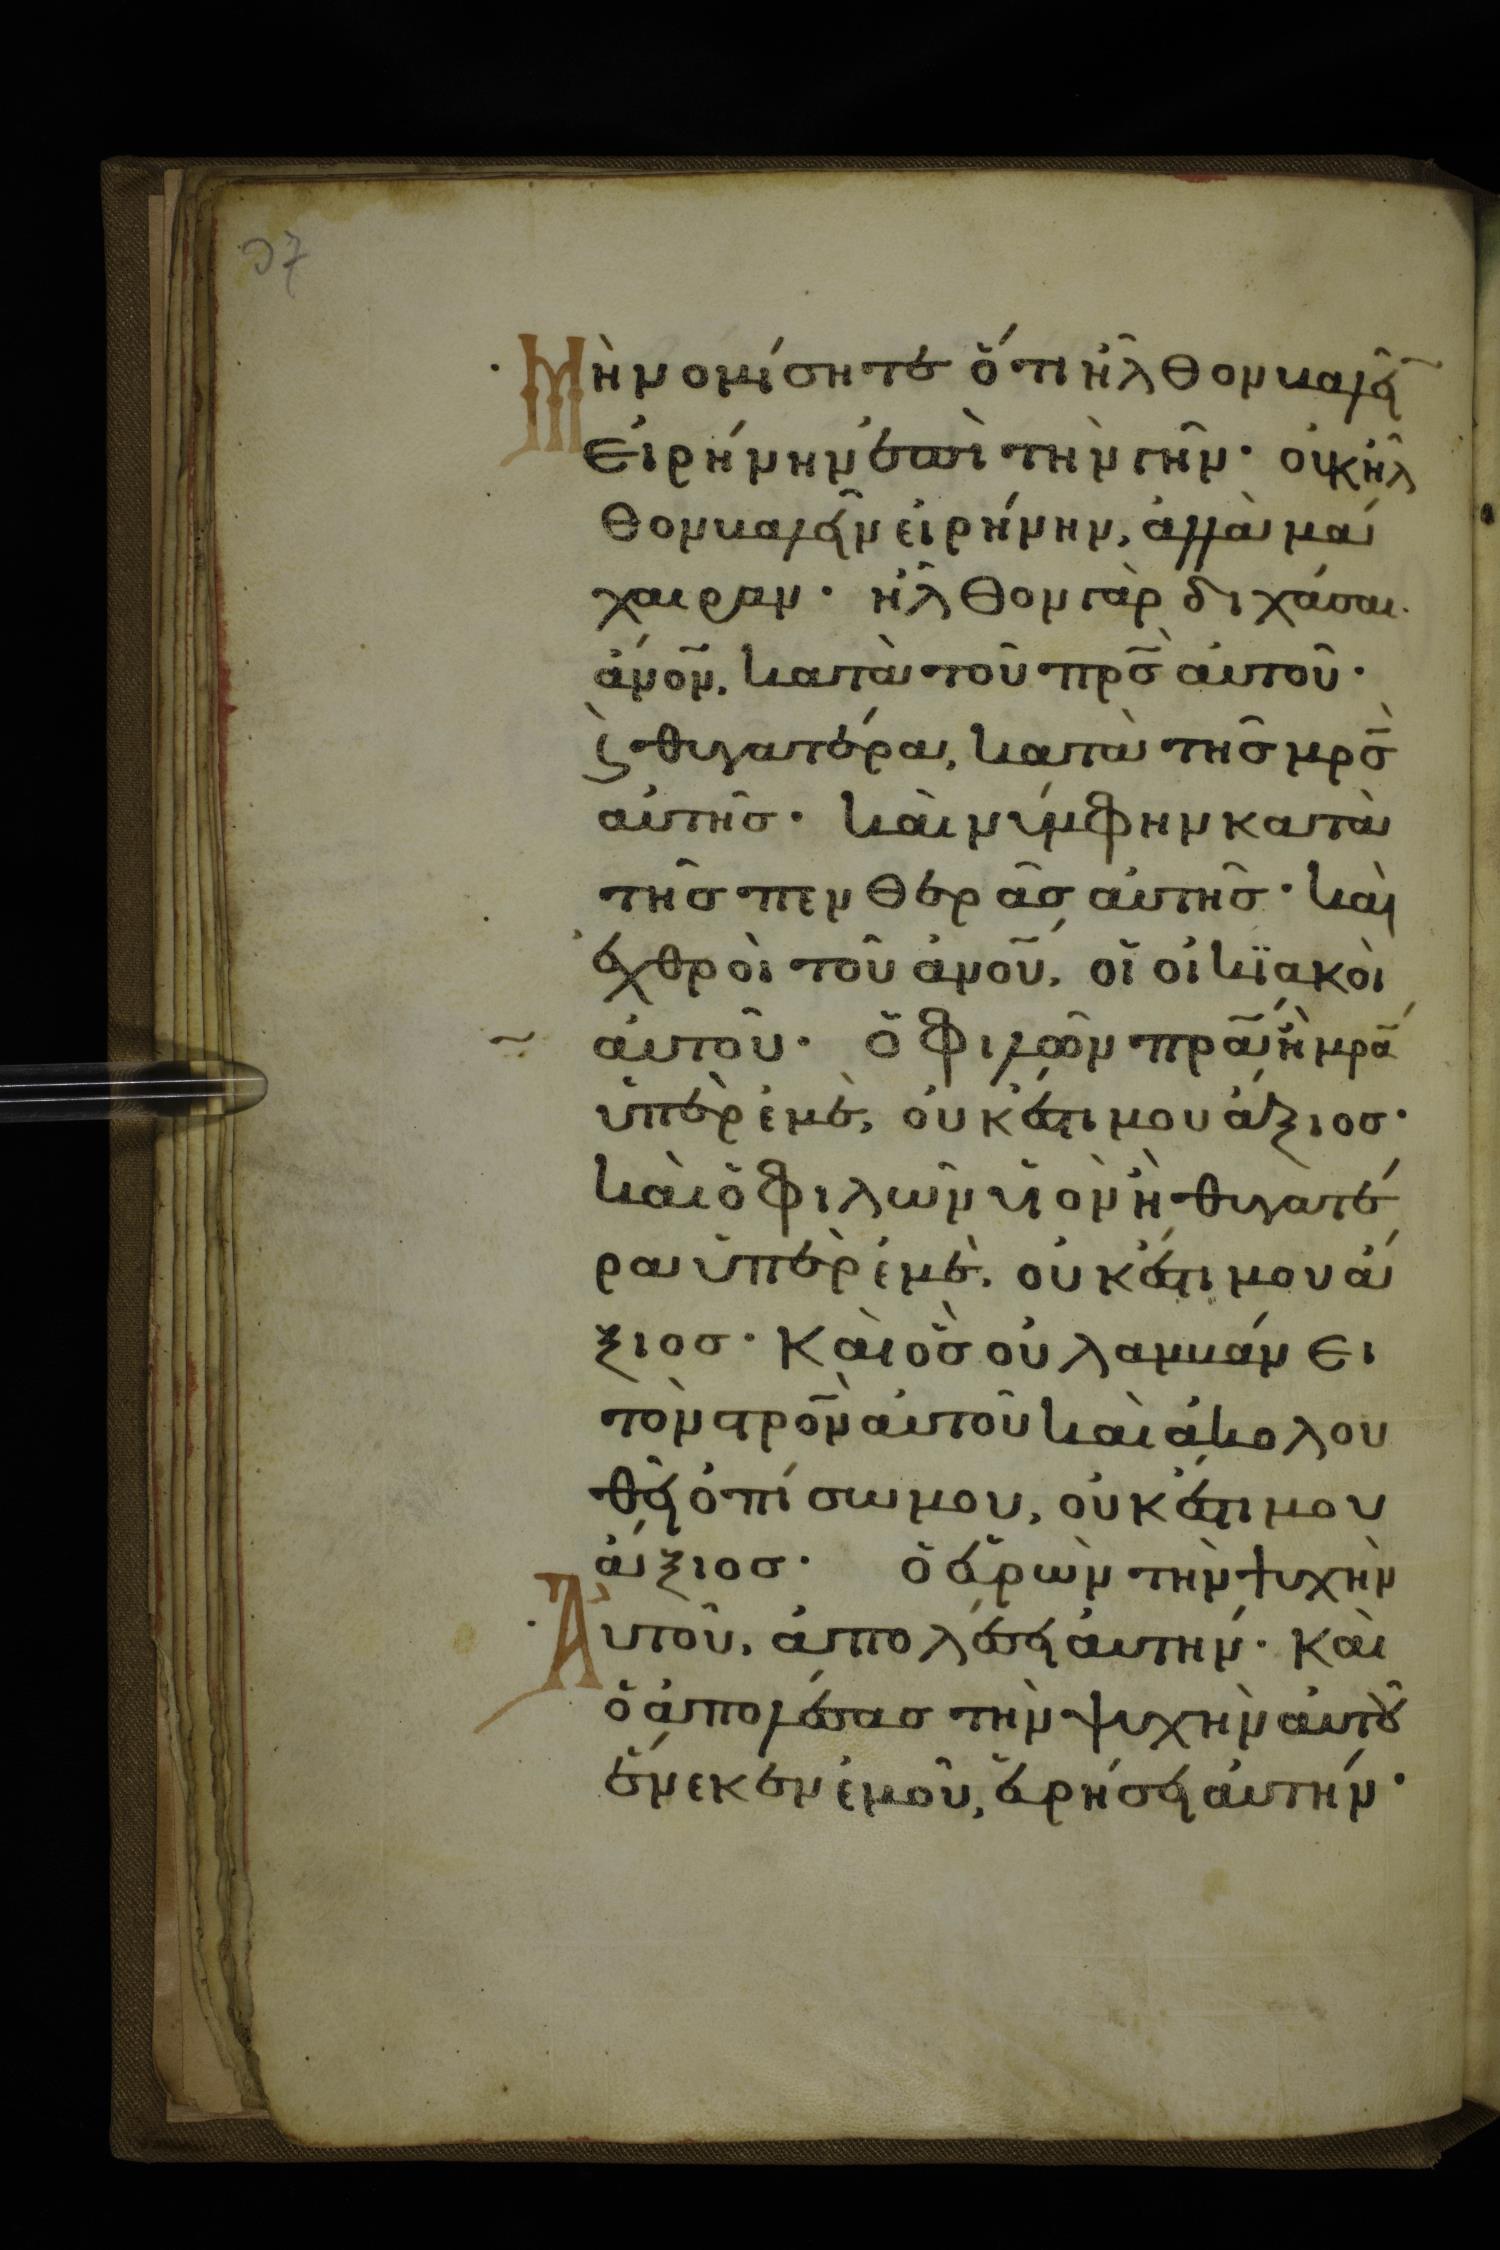 Μὴ νομίσητε ὅτι ἦλθον βαλεῖ̅
εἰρήνην ἐπὶ τὴν γῆν· οὐκ ἦλ
θον βαλεῖν εἰρήνην, ἀλλὰ μά
χαιραν· ἦλθον γὰρ διχάσαι.
ἄνο̅ν, κατὰ τοῦ πρ̅ς αὐτοῦ·
ϗ θυγατέρα, κατὰ τῆς μρ̅ς
αὐτῆς· καὶ νύμφην κατὰ
τῆς πενθερᾶς αὐτῆς· καὶ
ἐχθροὶ τοῦ ἀνο̅υ, οἱ οἰκϊακοὶ
αὐτοῦ· ὁ φιλῶν πρ̅α ἢ μρ̅α
ὑπὲρ ἐμὲ, οὐκ ἔστι μου ἄξιος·
καὶ ὁ φιλῶν υἱὸν ἢ θυγατέ
ρα ὑπὲρ ἐμὲ, οὐκ ἔστι μου ἄ
ξιος· Καὶ ὃς οὐ λαμβάνει
τὸν στρο̅ν αὐτοῦ καὶ ἀκολου
θεῖ ὀπίσω μου, οὐκ ἔστι μου
ἄξιος· ὁ εὑρὼν τὴν ψυχὴν
Αὐτοῦ, ἀπολέσει αὐτήν· καὶ
ὁ ἀπολέσας τὴν ψυχὴν αὐτοῦ
ἕνεκεν ἐμοῦ, εὑρήσει αὐτήν·